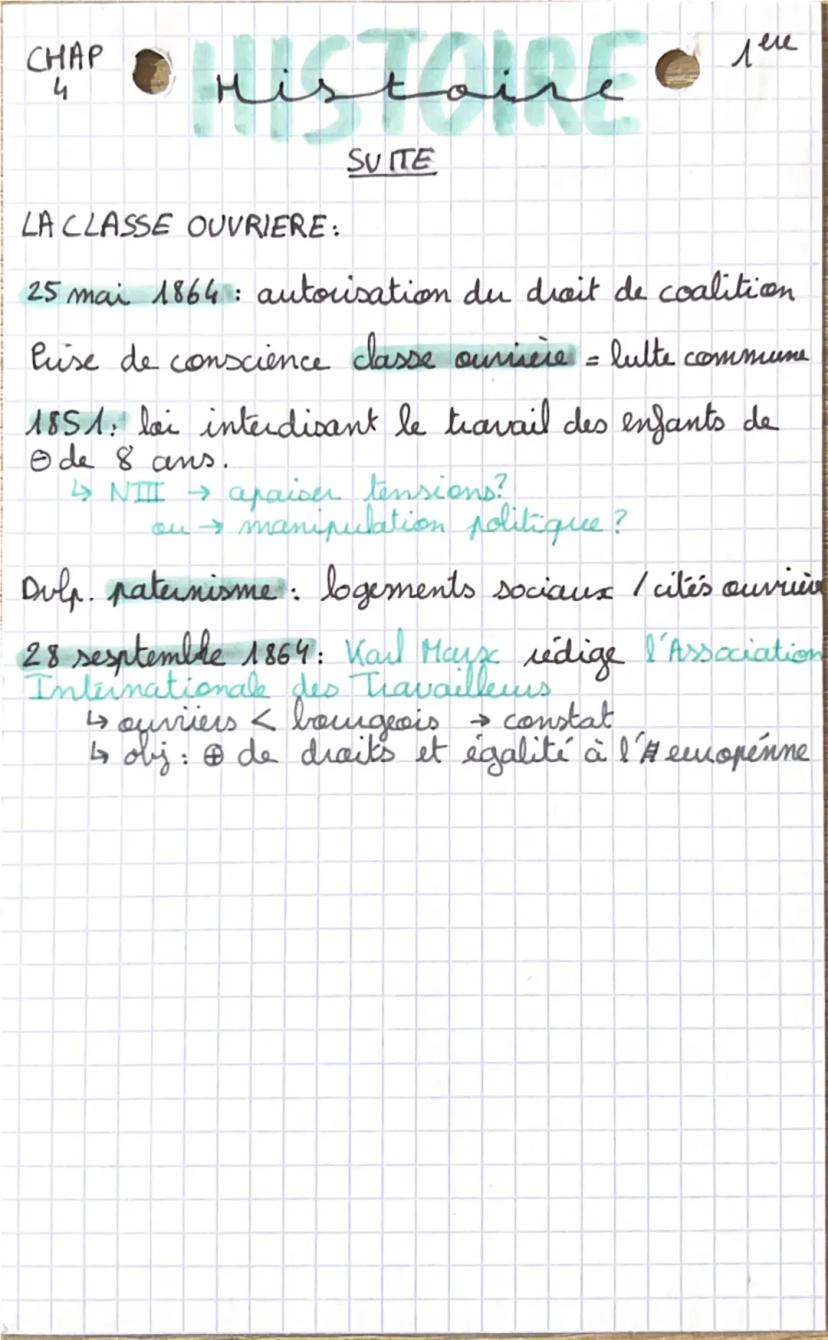 CHAP 4
HISTOIRE
Histoire
1ère
SUITE
LA CLASSE OUVRIERE :
25 mai 1864 : autorisation du droit de coalition
Prise de conscience classe ouvrière = lutte commune
1851 : loi interdisant le travail des enfants de
⊖ de 8 ans.
↳ NIII → apaiser tensions?
ou → manipulation politique ?
Dvlp. paternisme : logements sociaux / cités ouvrièr
28 sesptemble 1864 : Karl Marx rédige l'Association
Internationale des Travailleurs
↳ ouvriers < bourgeois → constat
↳ obj : ⊕ de droits et égalité à l'# europénne